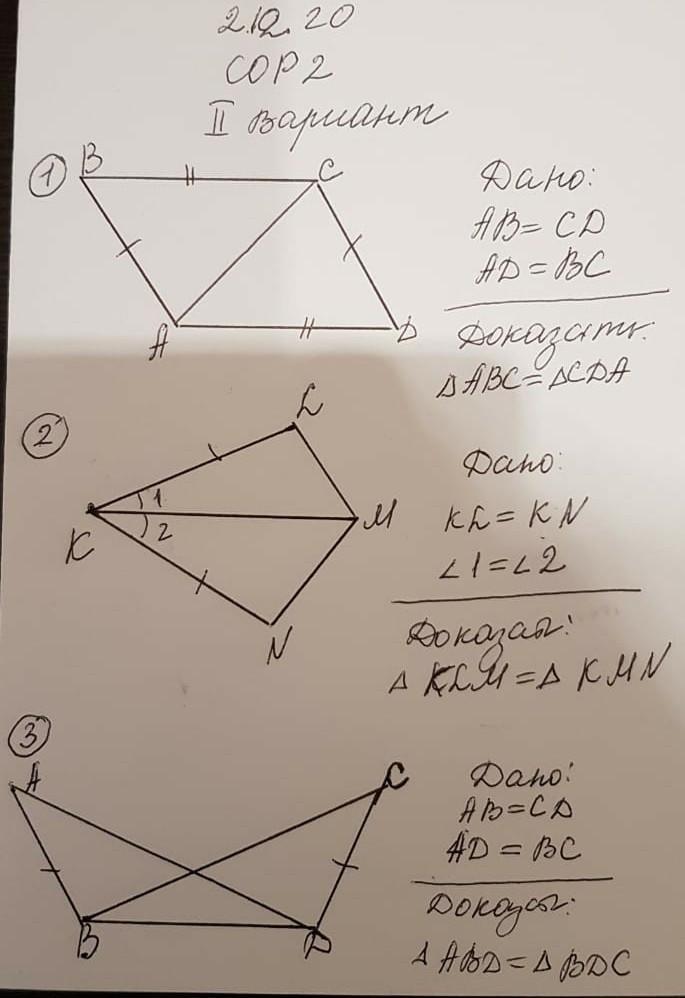 2.12.20
СОР 2
II вариант
1
B
C
A
D
Дано:
AB = CD
AD = BC
Доказать:
△ABC = △CDA
2
L
K
1
2
M
N
Дано:
KL = KN
∠1 = ∠2
Доказать:
△ KLM = △ KMN
3
A
C
B
D
Дано:
AB = CD
AD = BC
Доказать:
△ ABD = △ BDC